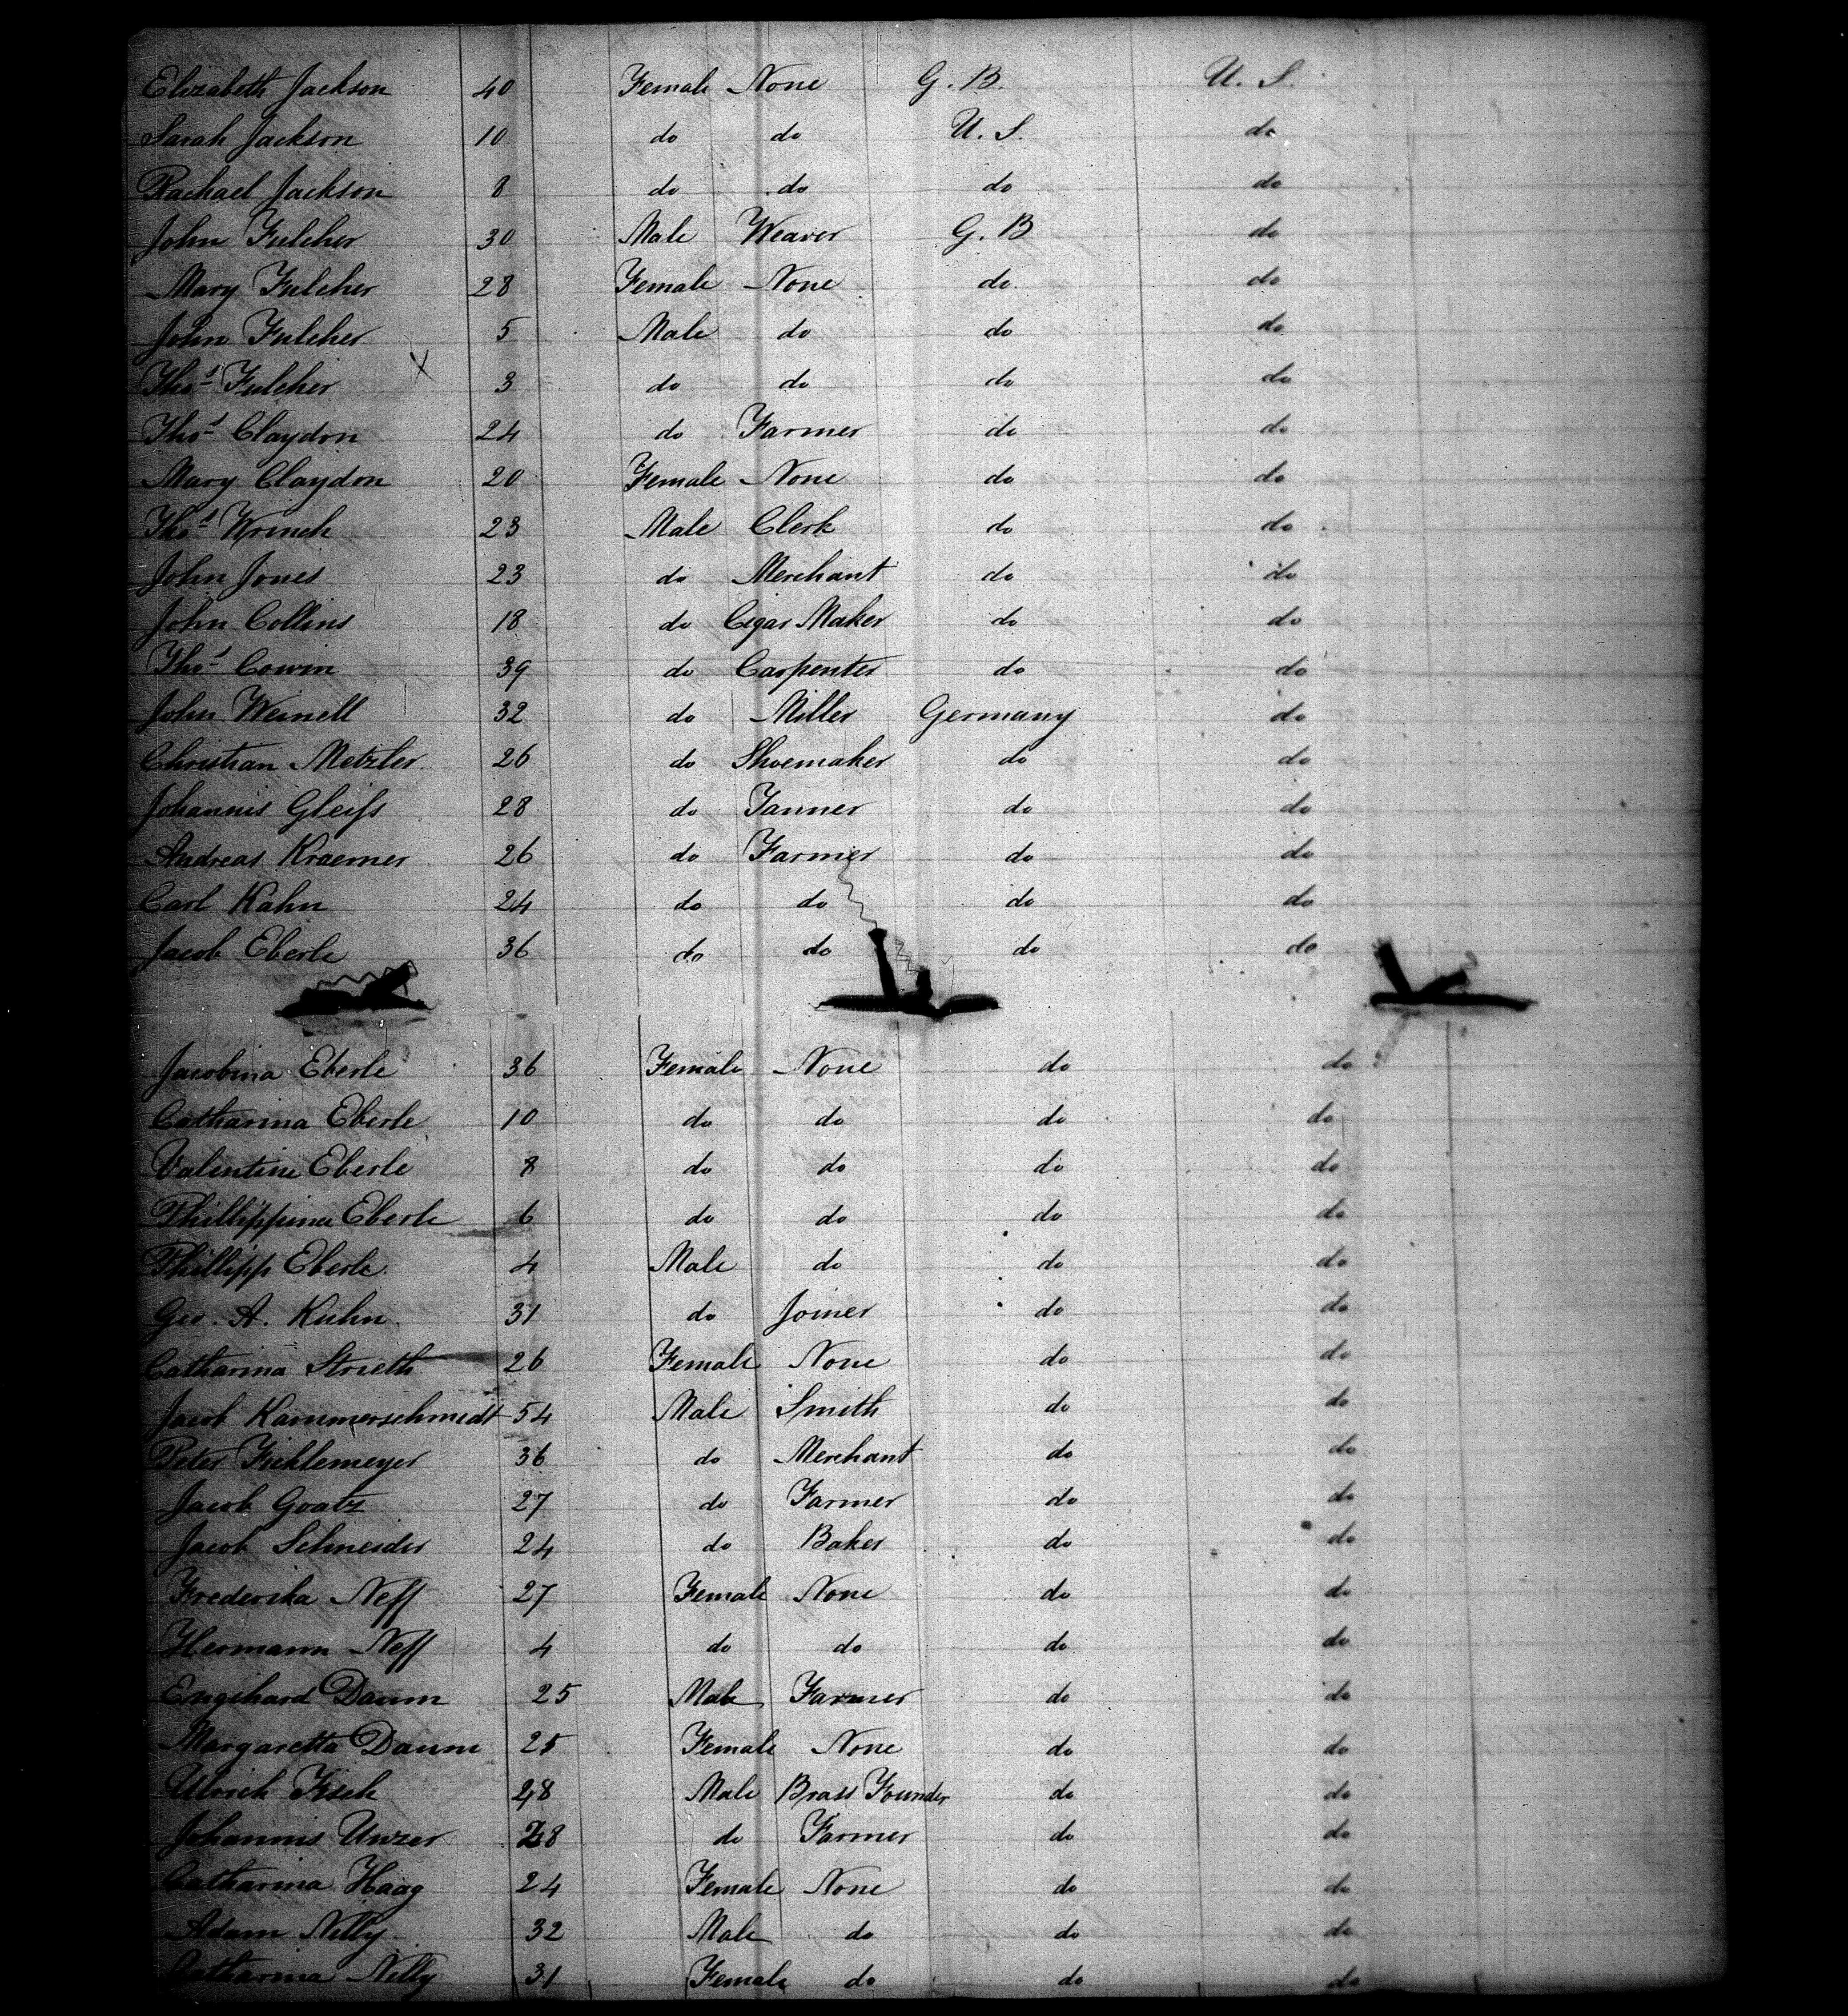 Elizabeth Jackson 40 Female None G. B. U. S.
Sarah Jackson 10 do do U. S. do
Rachael Jackson 8 do do do do
John Fulcher 30 Male Weaver G. B do
Mary Fulcher 28 Female None do do
John Fulcher 5 Male do do do
Thos Fulcher X 3 do do do do
Thos Claydon 24 do Farmer do do
Mary Claydon 20 Female None do do
Thos Wrinch 23 Male Clerk do do
John Jones 23 do Merchant do do
John Collins 18 do Cigar Maker do do
Thos Cowin 39 do Carpenter do do
John Weinell 32 do Miller Germany do
Christian Metzler 26 do Shoemaker do do
Johannis Gleiſs 28 do Tanner do do
Andreas Kraemer 26 do Farmer do do
Carl Kahn 24 do do do do
Jacob Eberle 36 do do do do
Jacobina Eberle 36 Female None do do
Catharina Eberle 10 do do do do
Valentine Eberle 8 do do do do
Phillippina Eberle 6 do do do do
Phillipp Eberle 4 Male do do do
Geo. A. Kuhn 31 do Joiner do do
Catharina Strieth 26 Female None do do
Jacob Kammerschmidt 54 Male Smith do do
Peter Ficklemeyer 36 do Merchant do do
Jacob Goatz 27 do Farmer do do
Jacob Schneider 24 do Baker do do
Frederika Neff 27 Female None do do
Hermann Neff 4 do do do do
Engihard Daum 25 Male Farmer do do
Margaretta Daum 25 Female None do do
Ulrich Fisch 28 Male Brass Founder do do
Johannis Unzer 28 do Farmer do do
Catharina Haag 24 Female None do do
Adam Nilly 32 Male do do do
Catharina Nilly 31 Female do do do